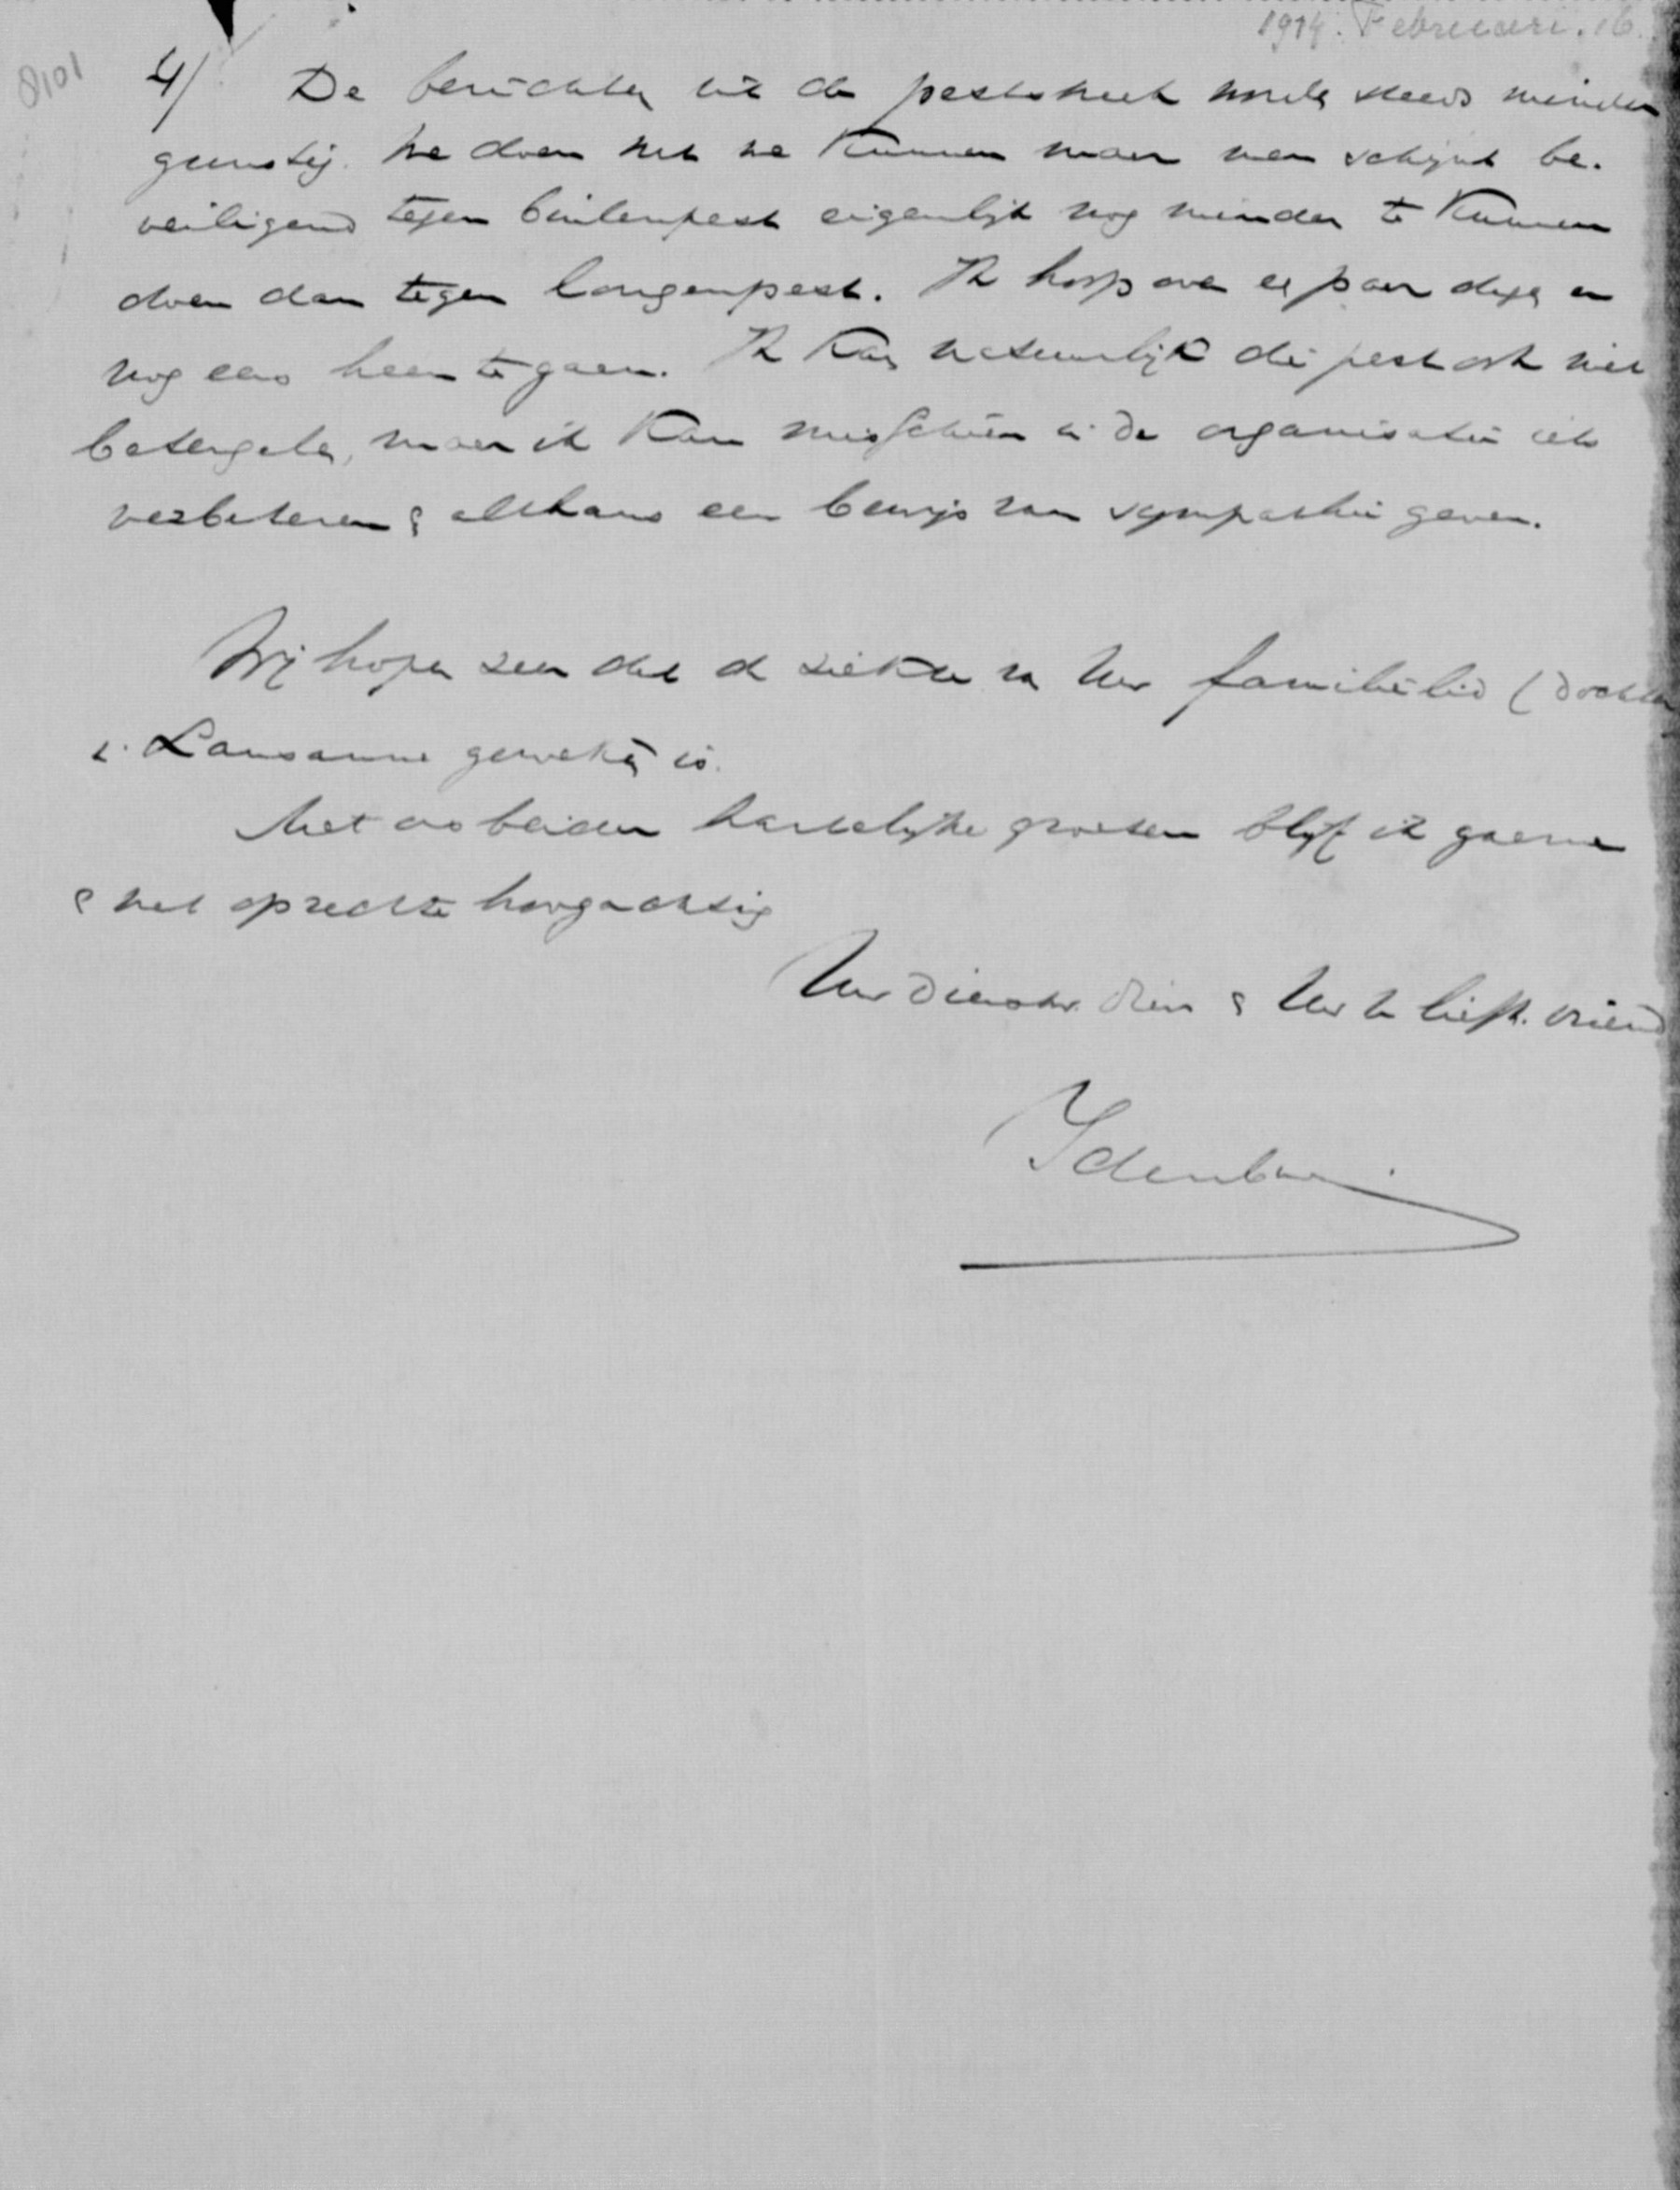 1914. Februari. 16.
8101
4/ De berichten uit de peststreek worden steeds minder
gunstig. We doen wat we kunnen maar men schijnt be-
veiligend tegen builenpest eigenlijk nog minder te kunnen
doen dan tegen longenpest. Ik hoop over een paar dagen er
nog eens heen te gaan. Ik kan natuurlijk die pest ook niet
maar ik kan misschien in de organisatie iets
verbeteren & althans een bewijs van sympathie geven.
Wij hopen zeer dat de ziekte van Uw familielid (dochter
i. Lausanne geweken is.
Met ons beider hartelijke groeten blijf ik gaarne
& met oprechte hoogachting
Uw dienstw. dien. & Uw liefh. vriend
Idenburg